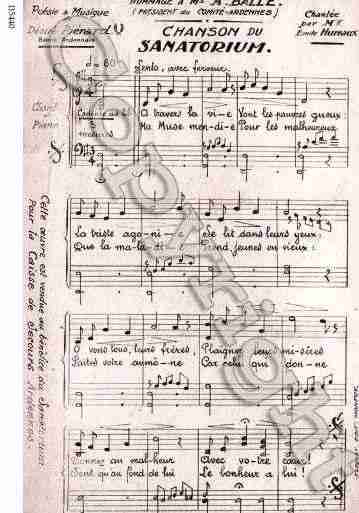 HOMMAGE A Mr A. BALLE.
(PRESIDENT du COMITÉ-ARDENNES)
Poésie & Musique
Chantée
par Mr
Emile Hureaux
CHANSON DU
SANATORIUM.
Lento, avec ferveur.
Chant
Piano
A travers la vi-e Vont les pauvres gueux
Ma Muse men-di-e Pour les malheureux
La triste ago-ni-e Se lit dans leurs yeux.
Que la mala-di-e Rend, jeunes ou vieux:
O vous tous, leurs frères, Plaignez leurs mi-sères
Faites votre aumô-ne Car celui qui don-ne
Donnez au mal-heur Avec vo-tre cœur!
Sent qu'au fond de lui Le bonheur a lui!
Cette œuvre est vendue au bénéfice du
Pour la Caisse de secours Ardennes.
Copyright